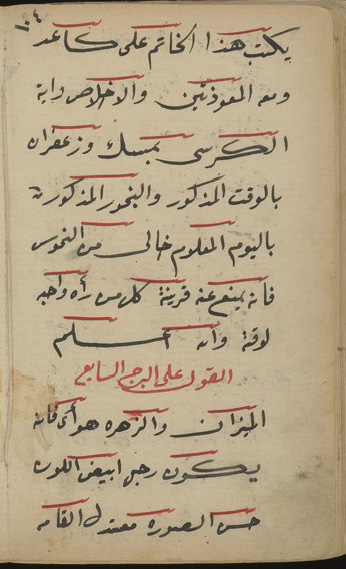 ١٠٤
يكتب هذا الخاتم على كاغد
ومعه المعوذتين والاخلاص واية
الكرسى بمسك وزعفران
بالوقت المذكور والبخور المذكورة
باليوم المعلوم خالى من النحوس
فانه يمنع عنه قرينة كل من رأه واحبه
لوقته والله اعلم
القول على البرج السابع
الميزان والزهره هوائى فانه
يكون رجل ابيض اللون
حسن الصورة معتدل القامه